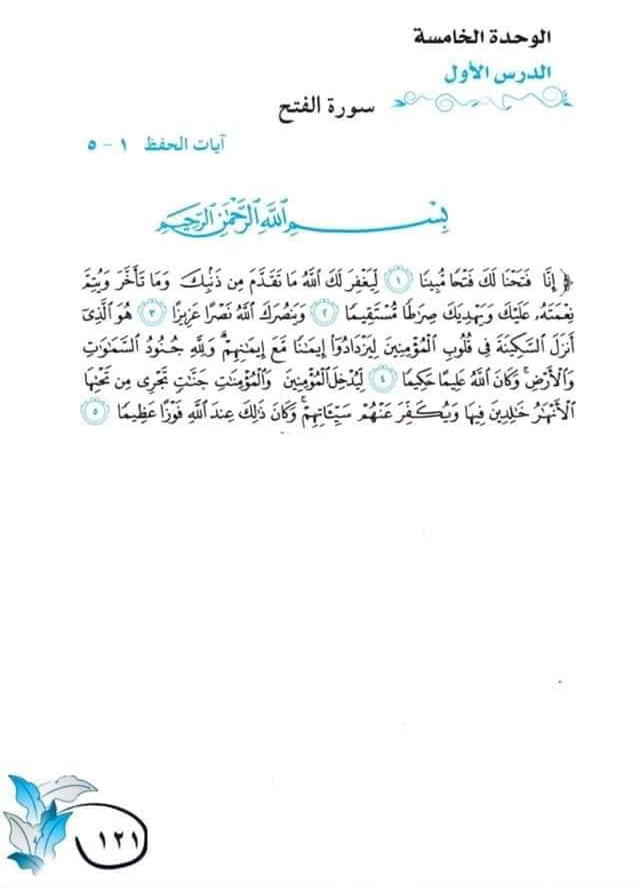 الوحدة الخامسة
الدرس الأول
سورة الفتح
آيات الحفظ ١ - ٥
بِسْمِ اللَّهِ الرَّحْمَٰنِ الرَّحِيمِ
﴿ إِنَّا فَتَحْنَا لَكَ فَتْحًا مُّبِينًا ١ لِّيَغْفِرَ لَكَ اللَّهُ مَا تَقَدَّمَ مِن ذَنۢبِكَ وَمَا تَأَخَّرَ وَيُتِمَّ
نِعْمَتَهُۥ عَلَيْكَ وَيَهْدِيَكَ صِرَٰطًا مُّسْتَقِيمًا ٢ وَيَنصُرَكَ اللَّهُ نَصْرًا عَزِيزًا ٣ هُوَ الَّذِىٓ
أَنزَلَ السَّكِينَةَ فِى قُلُوبِ الْمُؤْمِنِينَ لِيَزْدَادُوٓا۟ إِيمَٰنًا مَّعَ إِيمَٰنِهِمْ ۗ وَلِلَّهِ جُنُودُ السَّمَٰوَٰتِ
وَالْأَرْضِ ۚ وَكَانَ اللَّهُ عَلِيمًا حَكِيمًا ٤ لِّيُدْخِلَ الْمُؤْمِنِينَ وَالْمُؤْمِنَٰتِ جَنَّٰتٍ تَجْرِى مِن تَحْتِهَا
الْأَنْهَٰرُ خَٰلِدِينَ فِيهَا وَيُكَفِّرَ عَنْهُمْ سَيِّـَٔاتِهِمْ ۚ وَكَانَ ذَٰلِكَ عِندَ اللَّهِ فَوْزًا عَظِيمًا ٥
١٢١